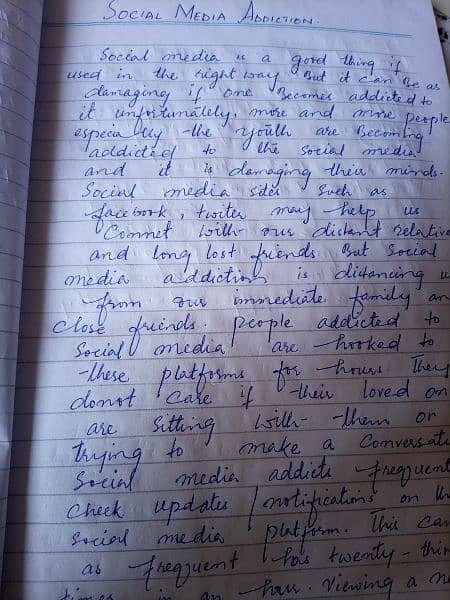 SOCIAL MEDIA ADDICTION.
Social media is a good thing if
used in the right way But it can Be as
damaging if one Becomes addicted to
it unfortunately, more and more people
especially the youth are Becoming
addicted to the social media
and it is damaging their minds.
Social media sites such as
facebook, twiter may help us
Connet with our distant relative
and long lost friends. But social
media addiction is distancing u
from our immediate family an
close friends. people addicted to
Social media are hooked to
these platforms for hours They
donot care if their loved on
are sitting with them or
trying to make a Conversati
Social media addicts frequent
check updates / notifications on th
social media platform. This can
as frequent has twenty-thir
times in an hour. viewing a ne